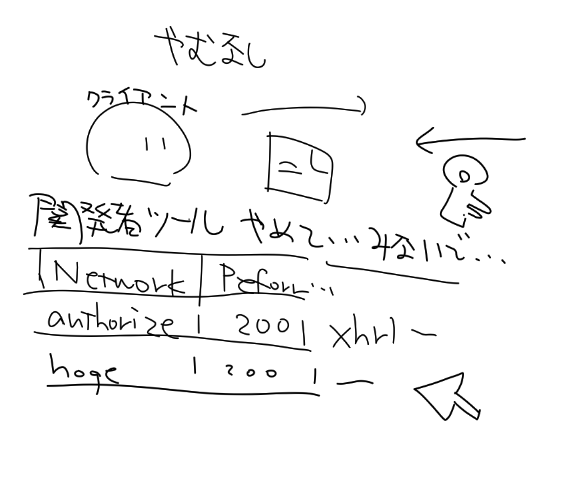 やむなし
クライアント
開発者ツール やめて...みないで...
Network | Preforr...
authorize | 200 | xhr | ー
hoge | 200 | ー